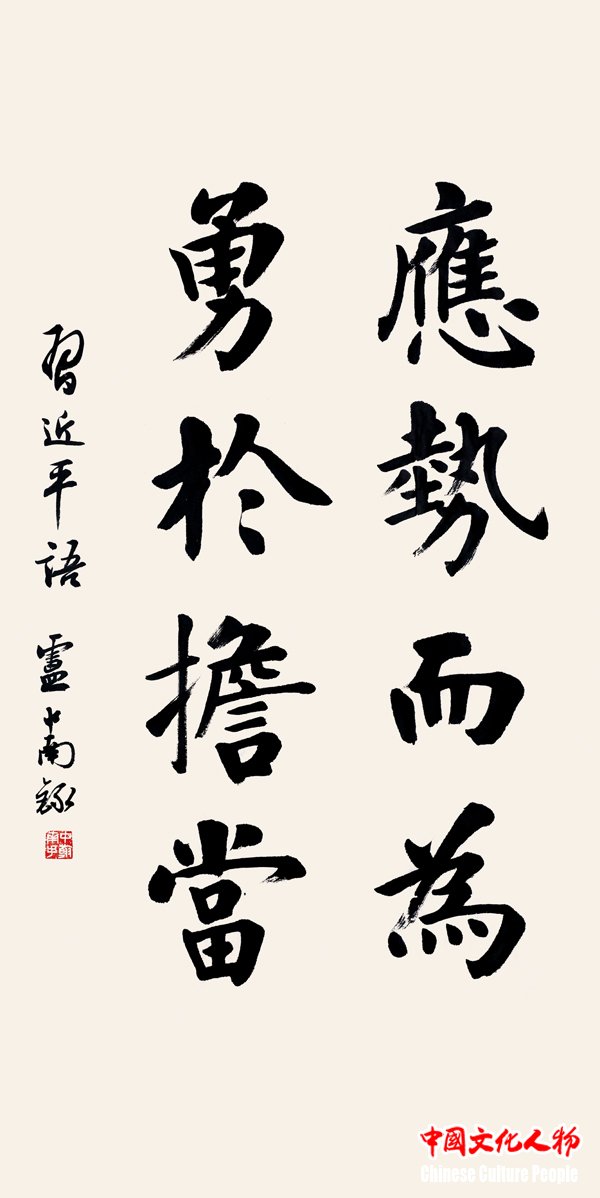 應勢而為
勇於擔當
習近平語 盧中南錄
中國文化人物
Chinese Culture People